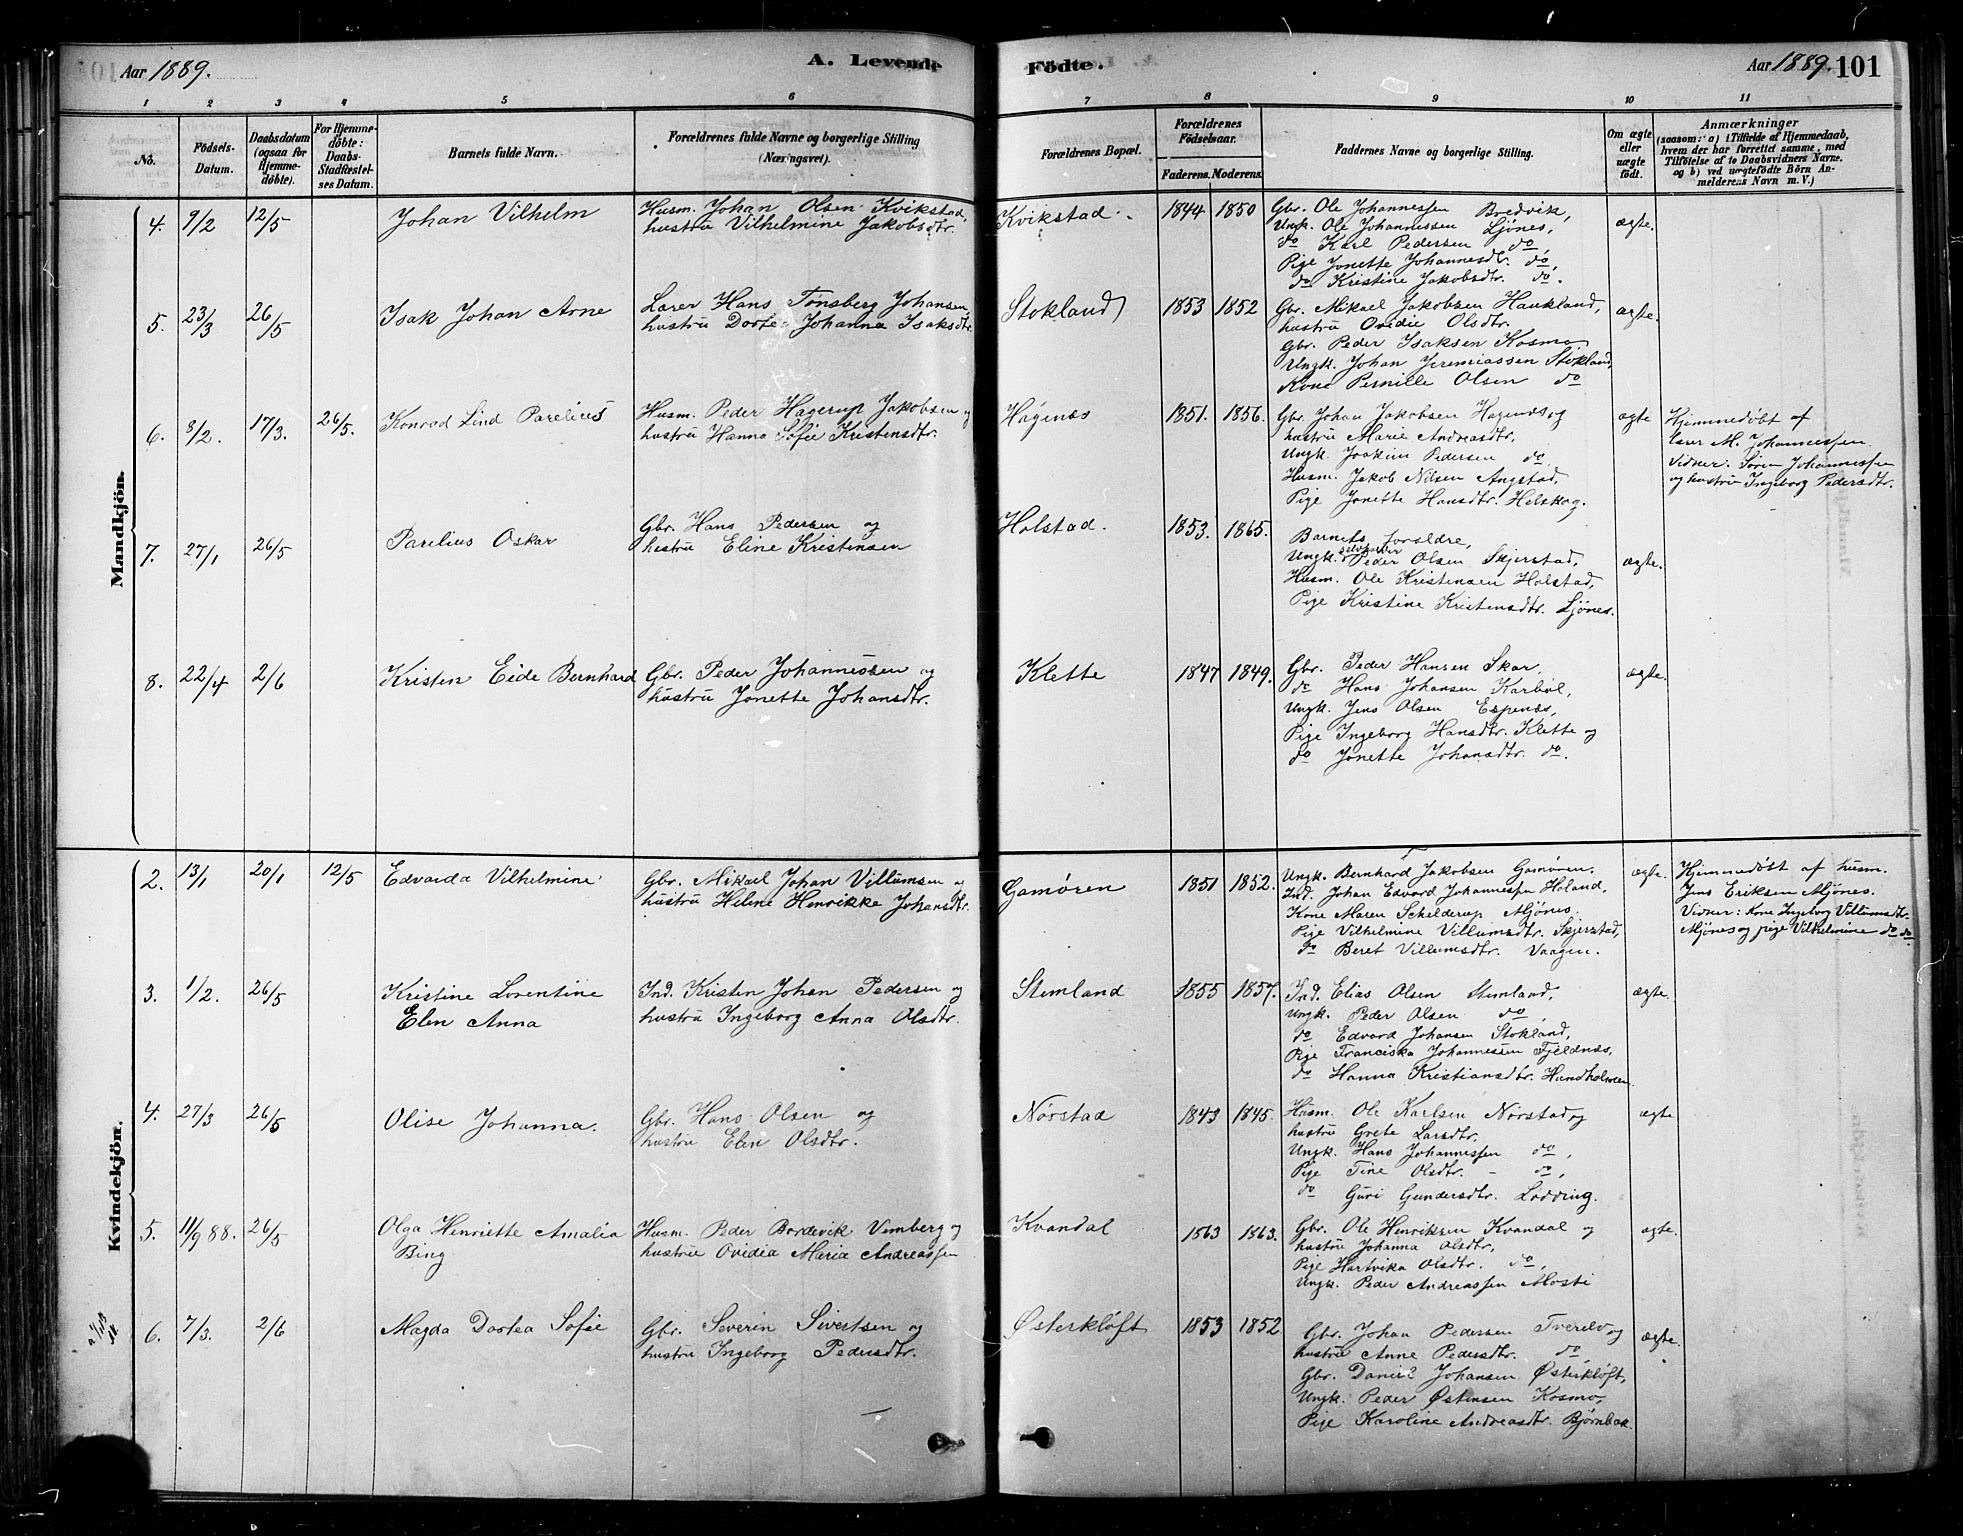 Aar 1889.
A. Levende
Födte.
Aar 1889.
101
1 2 3 4 5 6 7 8 9 10 11
No.
Födsels-
Datum.
Daabsdatum
(ogsaa for
Hjemme-
döbte).
For Hjemme-
döbte:
Daabs-
Stadfæstel-
ses Datum.
Barnets fulde Navn.
Forældrenes fulde Navne og borgerlige Stilling
(Næringsvei).
Forældrenes Bopæl.
Forældrenes
Födselsaar.
Faderens. Moderens.
Faddernes Navne og borgerlige Stilling.
Om ægte
eller
uægte
födt.
Anmærkninger
(saasom: a) i Tilfælde af Hjemmedaab,
hvem der har forrettet samme, med
Tilföielse af to Daabsvidners Navne.
og b) ved uægtefödte Börn An-
melderens Navn m. V.)
Mandkjön.
4. 9/2 12/5 Johan Vilhelm
Husm. Johan Olsen Kvikstad,
hustru Vilhelmine Jakobsdtr.
Kvikstad. 1844 1850
Gbr. Ole Johannessen Bredvik,
Ungk. Ole Johannessen Ljönes,
do Karl Pedersen do,
Pige Jonette Johannesdtr. do,
do Kristine Jakobsdtr. do.
ægte.
5. 23/3 26/5 Isak Johan Arne
Lærer Hans Tönsberg Johansen,
hustru Dortea Johanna Isaksdtr.
Stokland 1853 1852
Gbr. Mikael Jakobsen Haukland,
hustru Ovidie Olsdtr.
Gbr. Peder Isaksen Kosmo
Ungk. Johan Jeremiassen Stokland,
Kone Pernille Olsen do
ægte.
6. 8/2. 17/3. 26/5. Konrad Lind Parelius
Husm. Peder Hagerup Jakobsen og
hustru Hanna Sofie Kristensdtr.
Høgenæs 1851. 1856.
Gbr. Johan Jakobsen Høgenæs og
hustru Marie Andreasdtr,
Ungk. Joakim Pedersen do,
Husm. Jakob Nilsen Angstad,
Pige Jonette Hansdtr. Helskog.
ægte
Hjemmedöbt af
lærer M. Johannessen.
Vidner: Søren Johannessen
og hustru Ingeborg Pedersdtr.
7. 27/1 26/5 Parelius Oskar
Gbr. Hans Pedersen og
hustru Eline Kristensen
Holstad. 1853. 1865.
Barnets forældre,
Ungk. Peder Olsen Skjerstad,
Husm. Ole Kristensen Holstad,
Pige Kristine Kristensdtr. Ljönes.
ægte.
8. 22/4 2/6 Kristen Eide Bernhard
Gbr. Peder Johannessen og
hustru Jonette Johansdtr.
Klette 1847 1849.
Gbr. Peder Hansen Skar,
do Hans Johansen Karbøl,
Ungk. Jens Olsen Espenæs,
Pige Ingeborg Hansdtr. Klette og
do Jonette Johansdtr. do.
ægte.
Kvindekjön.
2. 13/1 20/1 12/5 Edvarda Vilhelmine
Gbr. Mikael Johan Villumsen og
hustru Heline Henrikke Johansdtr.
Gamøren 1851 1852.
Ungk. Bernhard Jakobsen Gamøren.
Ind. Johan Edvard Johannessen Høland,
Kone Maren Schelderup Mjönes
Pige Vilhelmine Villumsdtr. Skjerstad,
do Beret Villumsdtr. Vaagen.
ægte.
Hjemmedöbt af husm.
Jens Eriksen Mjönes.
Vidner: Kone Ingeborg Villumsdtr.
Mjönes og pige Vilhelmine do do
3. 1/2. 26/5 Kristine Lorentine
Elen Anna
Ind. Kristen Johan Pedersen og
hustru Ingeborg Anna Olsdtr.
Stemland 1855 1857.
Ind. Elias Olsen Stemland,
Ungk. Peder Olsen do,
do Edvard Johansen Stokland,
Pige Franciska Johannessen Fjeldnæs,
do Hanna Kristiansdtr. Hundholmen.
ægte.
4. 27/3 26/5 Olise Johanna.
Gbr. Hans Olsen og
hustru Elen Olsdtr.
Nørstad 1843 1845.
Husm. Ole Karlsen Nørstad og
hustru Grete Larsdtr.
Ungk. Hans Johannessen do,
Pige Tine Olsdtr. - do,
do Guri Gundersdtr. Lødding.
ægte
5. 11/9 88. 26/5 Olga Henriette Amalia
Bing
Husm. Peder Bordevik Vimberg og
hustru Ovidia Maria Andreassen
Kvandal 1863 1863.
Gbr. Ole Henriksen Kvandal og
hustru Johanna Olsdtr,
Pige Hartvika Olsdtr. do,
Ungk. Peder Andreassen Mosti
ægte.
6. 7/3. 2/6 Magda Dortea Sofie
Gbr. Severin Sivertsen og
hustru Ingeborg Pedersdtr.
Østerkløft 1853 1852
Gbr. Johan Pedersen Tverelv og
hustru Anne Pedersdtr. do,
Gbr. Daniel Johansen Østerkløft,
Ungk. Peder Østensen Kosmo,
Pige Karoline Andreasdtr. Bjørnbak
ægte.